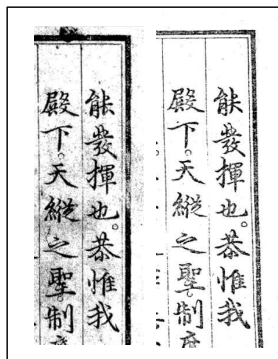 能發揮也。恭惟我
殿下。天縱之聖。制
能發揮也。恭惟我
殿下。天縱之聖。制度